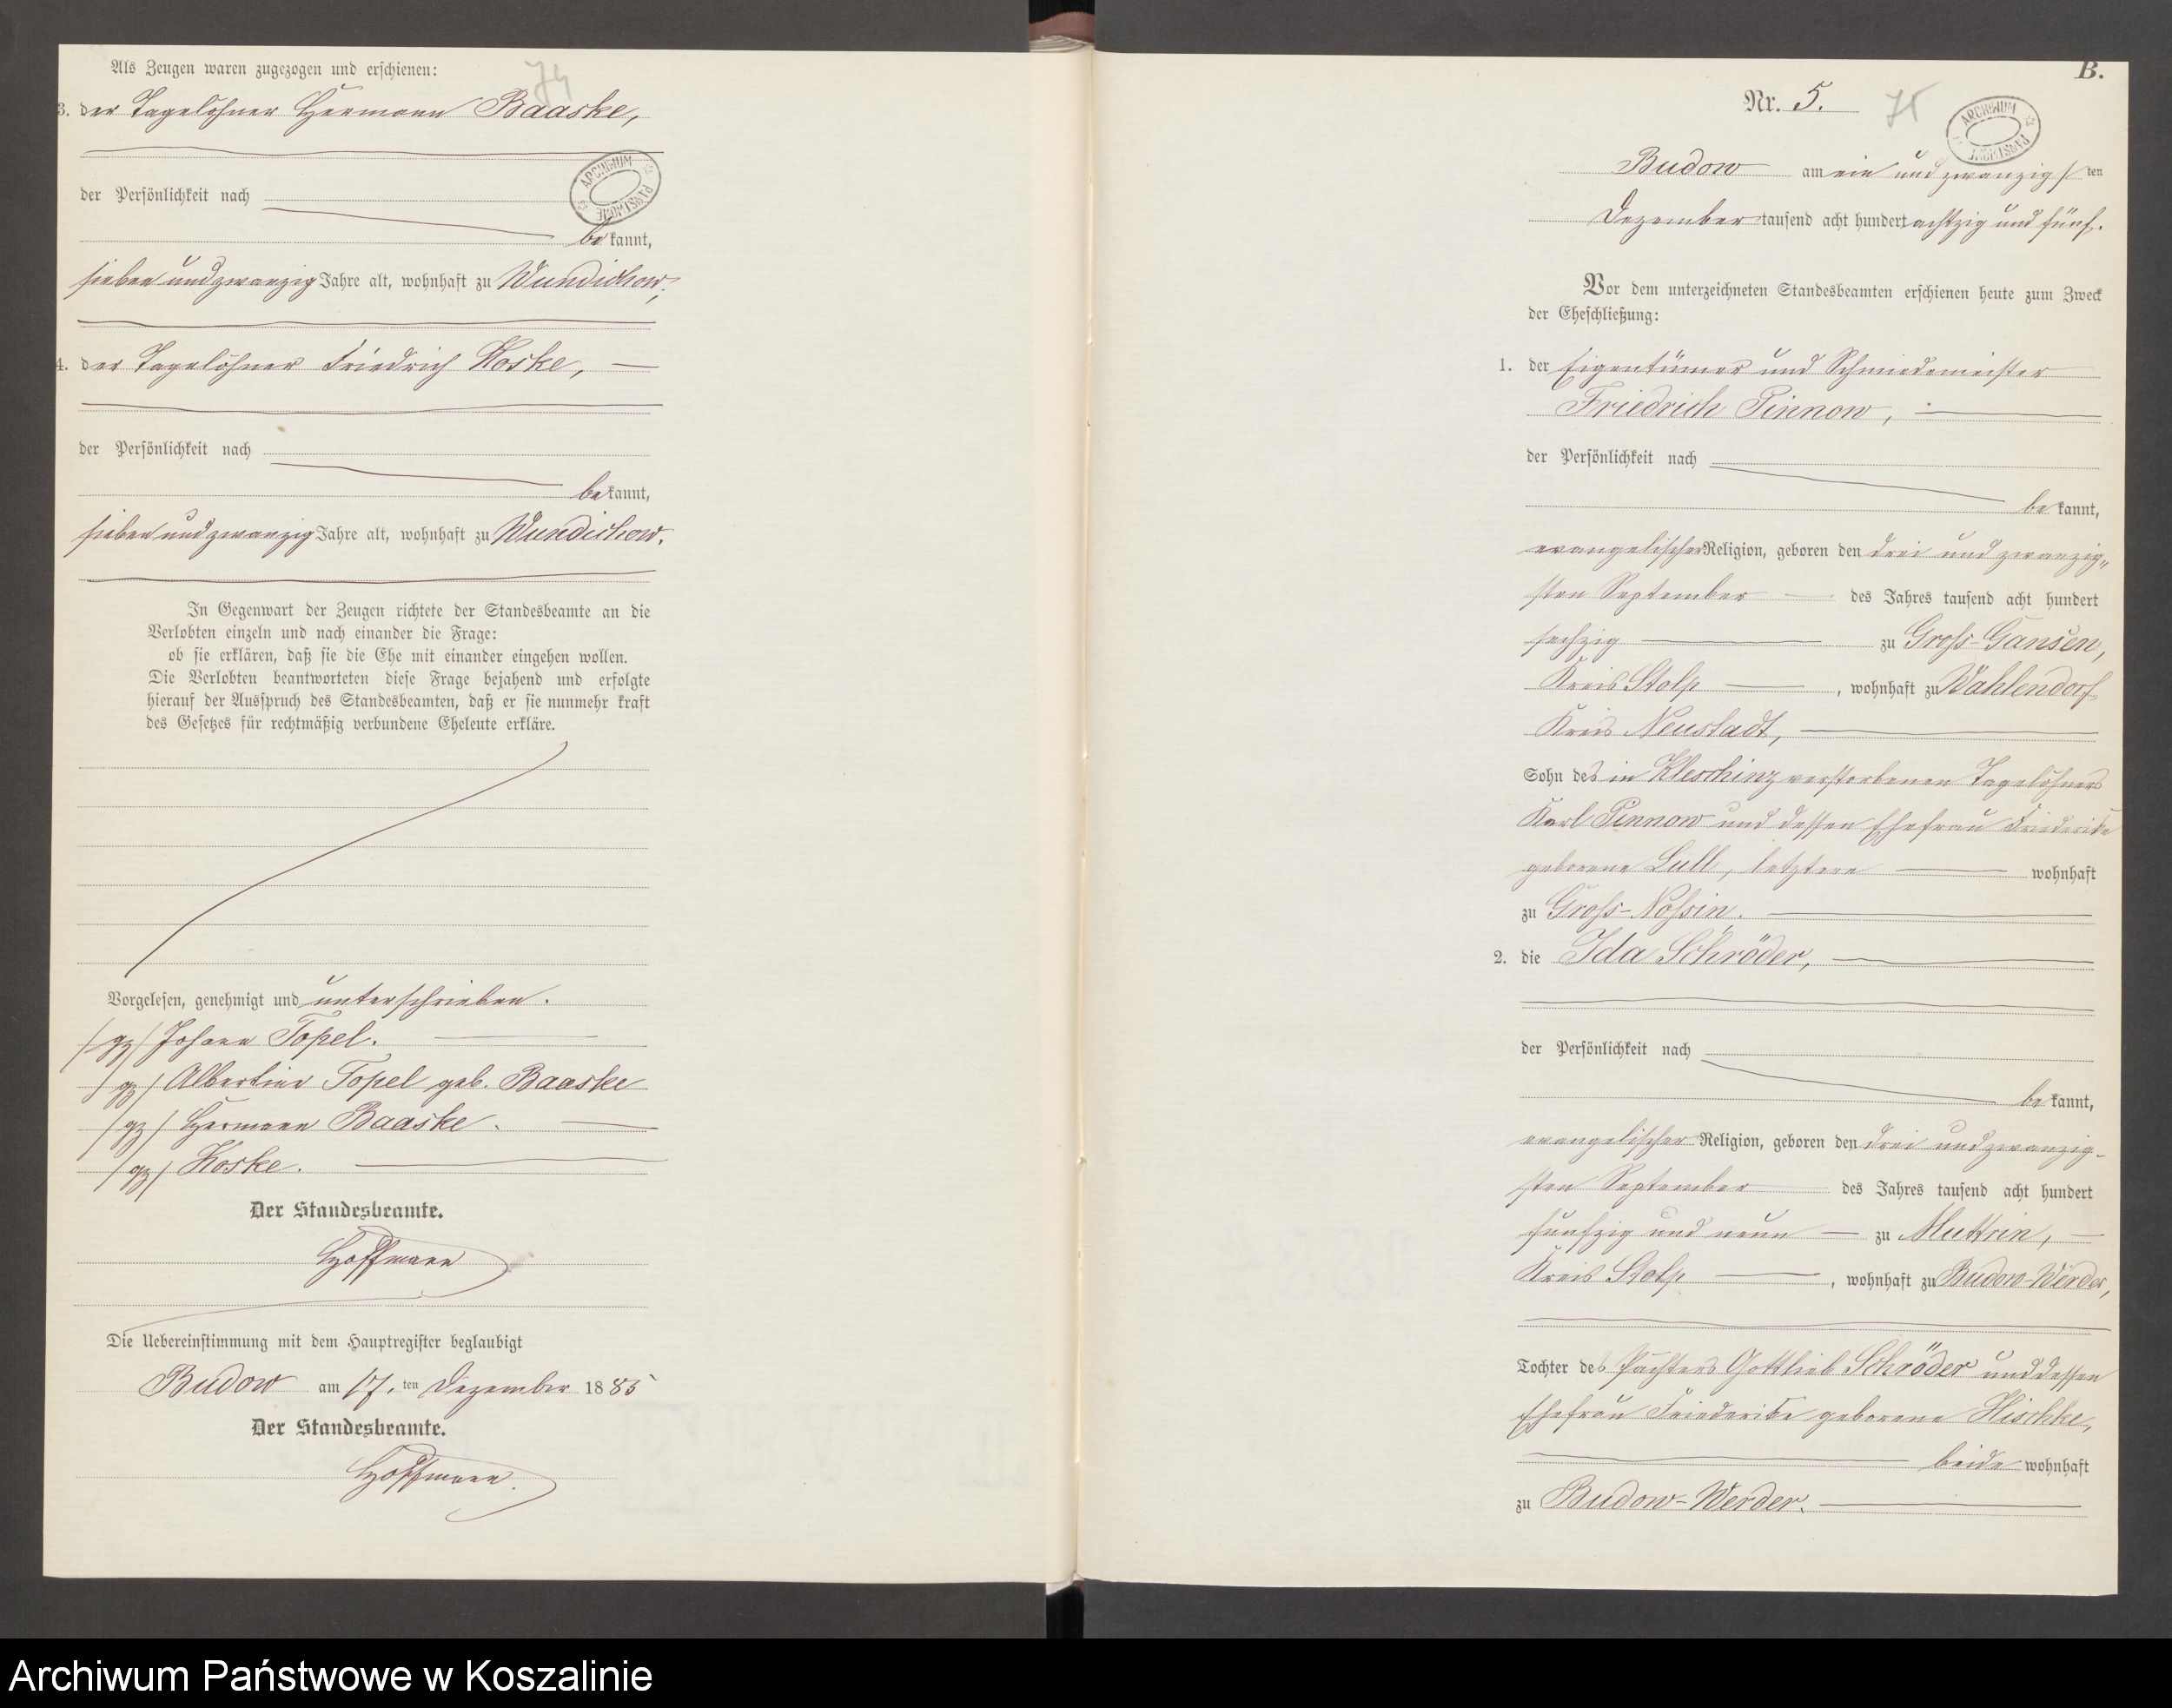 Als Zeugen waren zugezogen und erschienen:
74
3. der Tagelöhner Hermann Baaske,
ARCHIWUM PAŃSTWOWE
der Persönlichkeit nach
bekannt,
sieben und zwanzig Jahre alt, wohnhaft zu Wundichow;
4. der Tagelöhner Friedrich Koske,
der Persönlichkeit nach
bekannt,
sieben und zwanzig Jahre alt, wohnhaft zu Wundichow.
In Gegenwart der Zeugen richtete der Standesbeamte an die
Verlobten einzeln und nach einander die Frage:
ob sie erklären, daß sie die Ehe mit einander eingehen wollen.
Die Verlobten beantworteten diese Frage bejahend und erfolgte
hierauf der Ausspruch des Standesbeamten, daß er sie nunmehr kraft
des Gesetzes für rechtmäßig verbundene Eheleute erkläre.
Vorgelesen, genehmigt und unterschrieben.
/gz/ Johann Topel.
/gz/ Albertine Topel geb. Baaske
/gz/ Hermann Baaske.
/gz/ Koske.
Der Standesbeamte.
Hoffmann
Die Uebereinstimmung mit dem Hauptregister beglaubigt
Budow am 17. ten Dezember 1885
Der Standesbeamte.
Hoffmann.
B.
Nr. 5.
75
ARCHIWUM PAŃSTWOWE
Budow am ein und zwanzigs ten
Dezember tausend acht hundert achtzig und fünf.
Vor dem unterzeichneten Standesbeamten erschienen heute zum Zweck
der Eheschließung:
1. der Eigentümer und Schmiedemeister
Friedrich Pinnow,
der Persönlichkeit nach
bekannt,
evangelischer Religion, geboren den drei und zwanzig-
sten September des Jahres tausend acht hundert
sechzig zu Groß-Gansen,
Kreis Stolp, wohnhaft zu Wahlendorf
Kreis Neustadt,
Sohn des in Kleschinz verstorbenen Tagelöhners
Karl Pinnow und dessen Ehefrau Friederike
geborene Lull, letztere wohnhaft
zu Groß-Nossin.
2. die Ida Schröder,
der Persönlichkeit nach
bekannt,
evangelischer Religion, geboren den drei und zwanzig-
sten September des Jahres tausend acht hundert
fünfzig und neun zu Muttrin,
Kreis Stolp, wohnhaft zu Budow-Werder,
Tochter des Pächters Gottlieb Schröder und dessen
Ehefrau Friederike geborene Hischke,
beide wohnhaft
zu Budow-Werder.
Archiwum Państwowe w Koszalinie